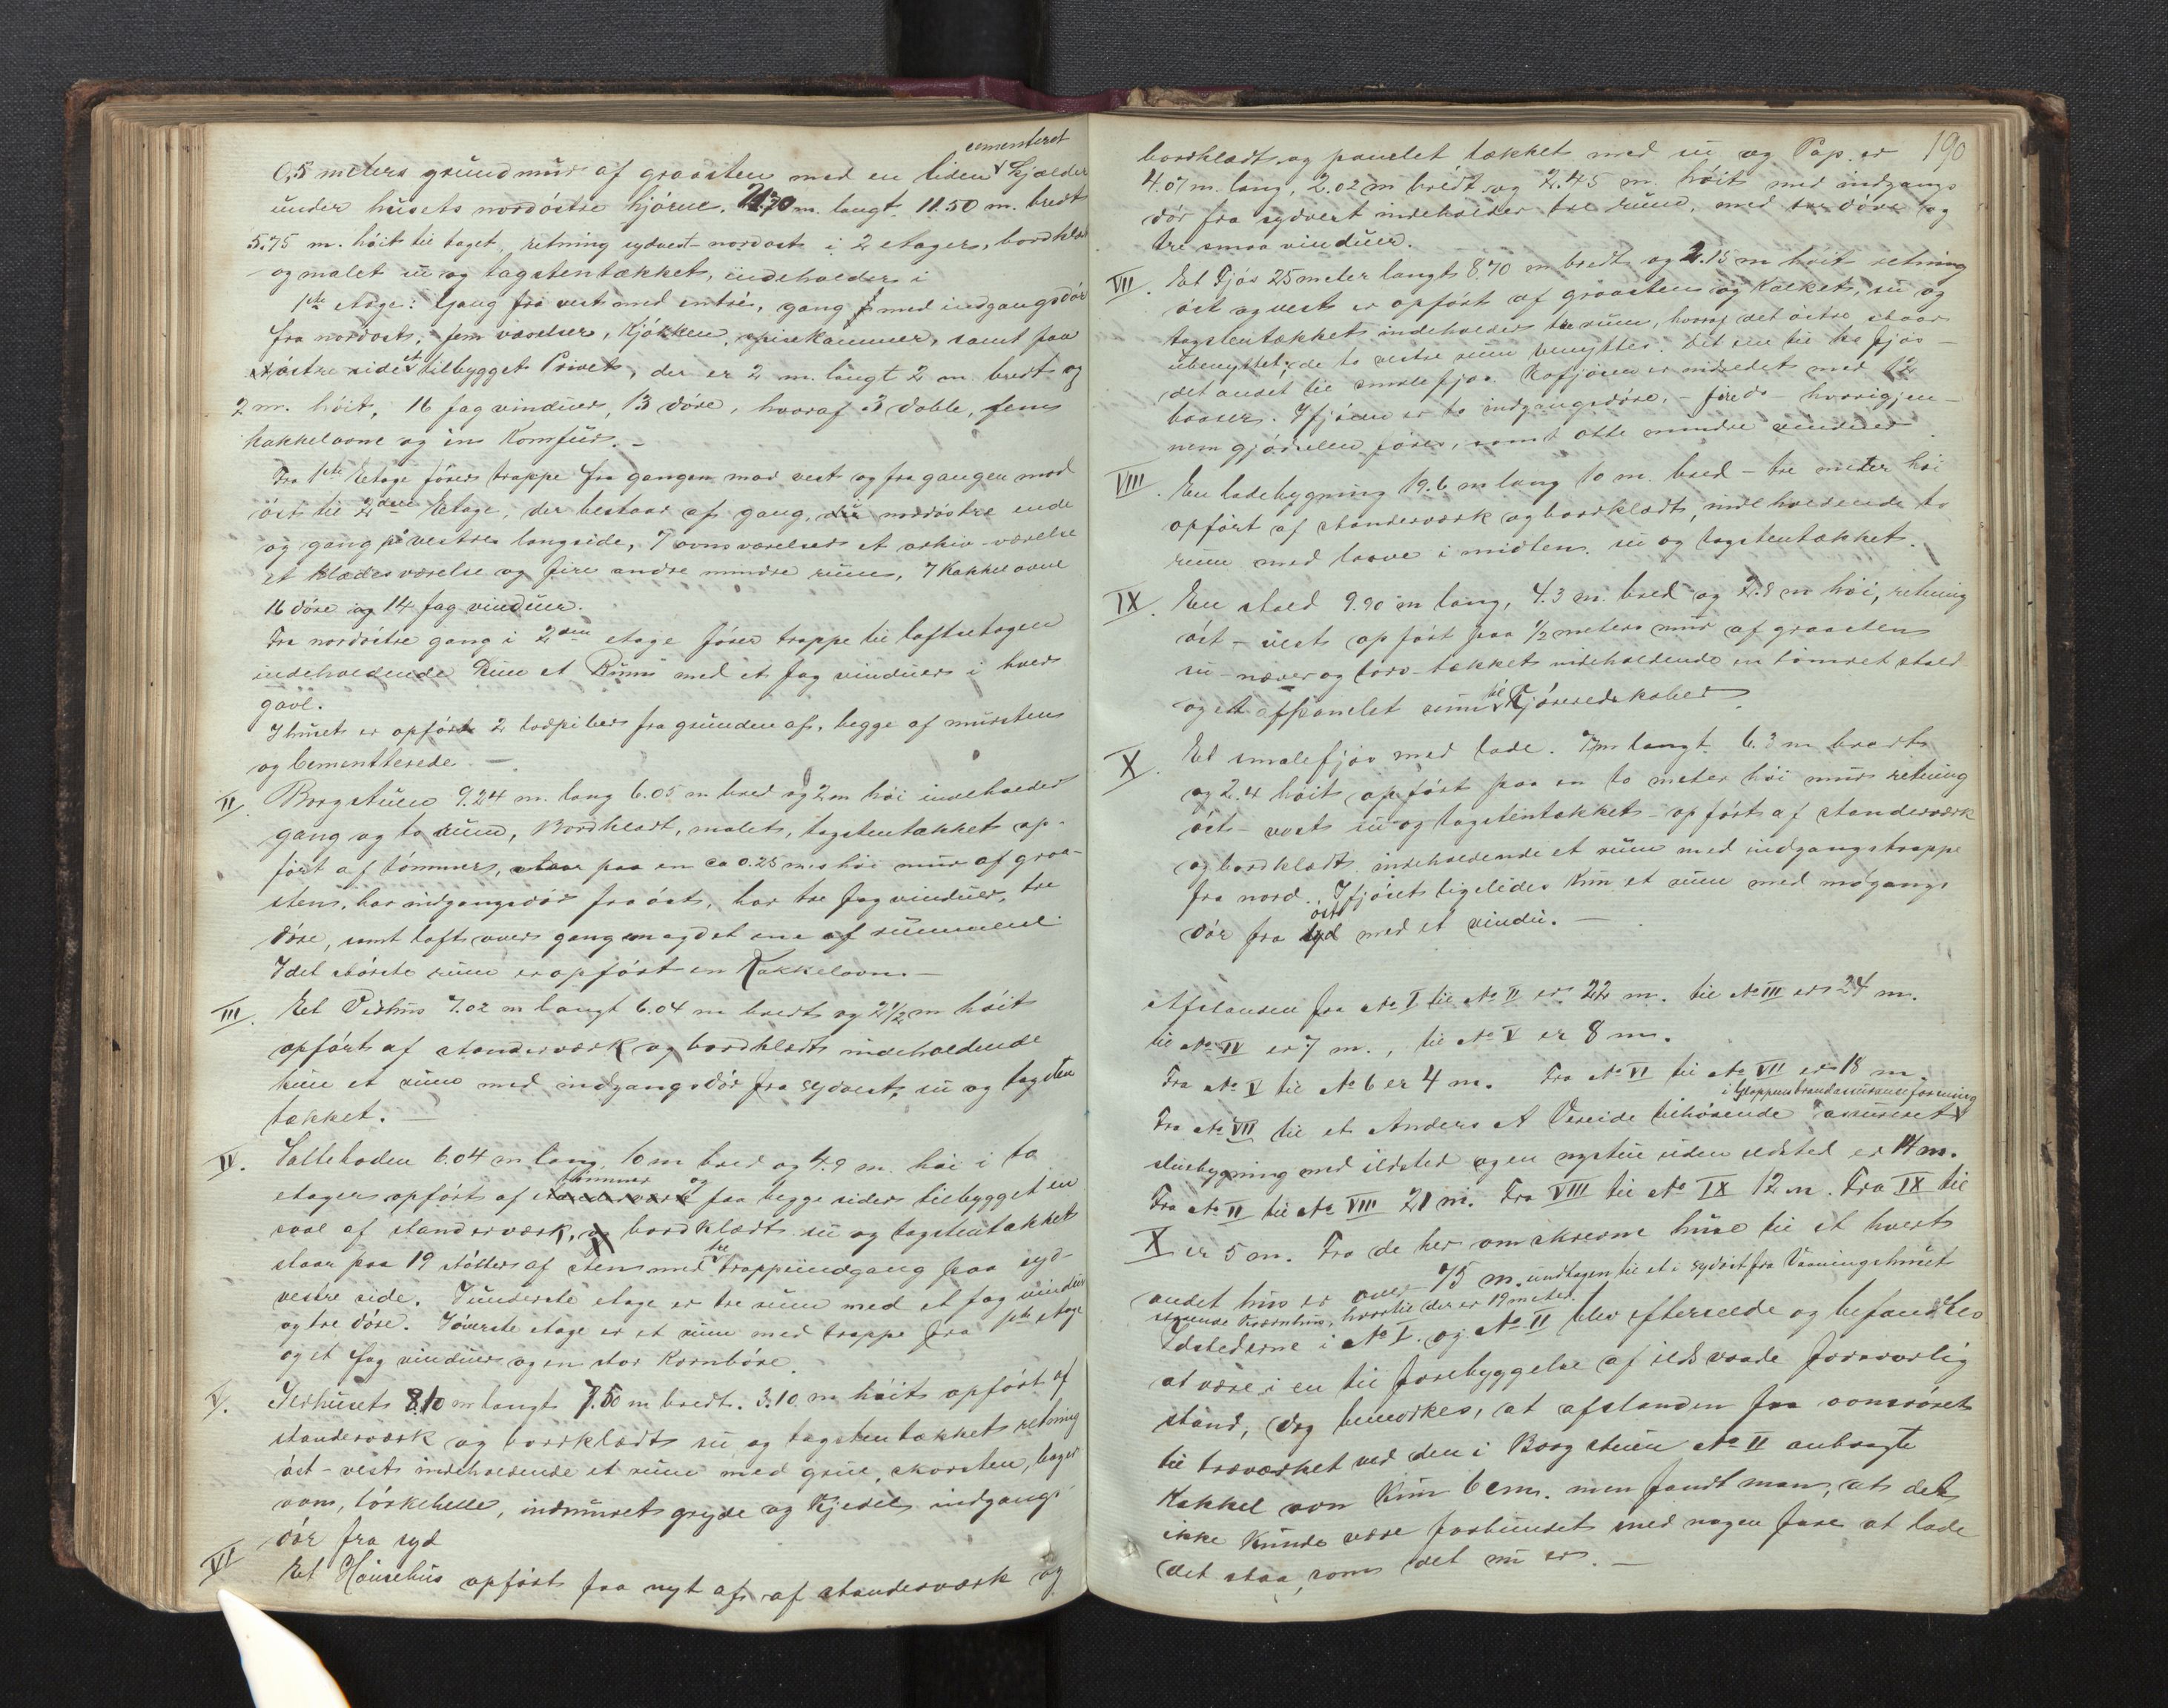 cementeret
0,5 meters grundmur af graasten med en liden kjælder
under husets nordöstre hjörne. 21.70 m. langt. 11.50 m. bredt
5.75 m. höit til taget, retning sydvest-nordost i 2 etager, bordklædt
og malet ny og tagstentækket, indeholder i
1ste etage: Gang fra vest med entré, gang med indgangsdör
fra nordost, fem værelser, Kjökken, spisekammer, samt paa
östre side et tilbygget Privet, der er 2 m. langt 2 m. bredt og
2 m. höit, 16 fag vinduer, 13 döre, hvoraf 3 doble, fem
kakkelovne og én Komfur. –
Fra 1ste Etage förer trappe fra gangen mod vest og fra gangen mod
öst til 2den Etage, der bestaar af gang i nordöstre ende
og gang på vestre langside, 7 ovnsværelser et arkiv-værelse
et klædesværelse og fire andre mindre rum, 7 Kakkelovne
16 döre og 14 fag vinduer.
Fra nordöstre gang i 2den etage förer trappe til loftsetagen
indeholdende kun et Rum med et fag vinduer i hver
gavl.
I huset er opfört 2 torpiber fra grunden af, begge af mursten
og Cementterede. –
II. Borgstuen 9.24 m. lang 6.05 m bred og 2 m höi indeholder
gang og to rum, Bordklædt, malet, tagstentækket op-
fört af tömmer, staar paa en ca 0.25 m. höi mur af graa-
sten, har indgangsdör fra öst, har tre fag vinduer, tre
döre, samt loft over gangen og det ene af rummene.
I det störste rum er opfört en Kakkelovn. –
III. Et Vedhus 7.02 m langt 6.04 m bredt og 2 1/2 m höit
opfört af standerværk og bordklædt indeholdende
kun et rum med indgangsdör fra sydvest, ny og tagsten
tækket. –
IV. Saltboden 6.04 m lang, 10 m bred og 4.9 m. höi i to
tömmer og
etager opfört af standerværk paa begge sider tilbygget en
sval af standerværk, og bordklædt ny og tagstentækket
tre
staar paa 19 stötter af sten med trappeindgang paa syd-
vestre side. I underste etage er tre rum med et fag vinduer
og tre döre. I överste etage er et rum med trappe fra 1ste etage
og et fag vinduer og en stor Kornböre.
V. Ildhuset 8.10 m langt 7.50 m bredt. 3.10 m höit opfört af
standerværk og bordklædt ny og tagstentækket retning
öst-vest indeholdende et rum med grue, skorsten, bager
ovn, törkehelle, indmuret gryde og Kjedel indgangs
dör fra syd
VI Et Hönsehus opfört fra nyt af af standerværk og
190
bordklædt og panelet tækket med ny og Pap er
4.07 m. lang, 2.02 m bredt og 2.45 m. höit med indgangs
dör fra sydvest indeholder tre rum, med tre döre og
tre smaa vinduer.
VII. Et Fjös 25 meter langt 8.70 m bredt og 2.15 m höit retning
öst og vest er opfört af graasten og Kalket, ny og
tagstentækket indeholder tre rum, hvoraf det östre staar
ubenyttet, de to vestre rum benyttes. Det ene til kofjös –
det andet til smalefjös. Kofjösen er indredet med 12
baaser. I fjösene er to indgangsdöre, – fire do – hvorigjen-
nem gjödselen föres, samt otte mindre vinduer.
VIII. En ladebygning 19.6 m lang 10 m. bred – tre meter höi
opfört af standerværk og bordklædt, indeholdende to
rum med laave i midten. ny og tagstentækket.
IX. En stald 9.90 m lang, 4.3 m. bred og 2.8 m höi, retning
öst-vest opfört paa 1/2 meters mur af graasten
ny – næver og torv-tækket indeholdende en tömret stald
til
og et afpanelet rum Kjöreredskaber.
X. Et smalefjös med lade. 7 m langt. 6.3 m. bredt
og 2.4 höit, opfört paa en to meter höi mur retning
öst-vest ny og tagstentækket – opfört af standerværk
og bordklædt indeholdende et rum med indgangstrappe
fra nord. I fjöset ligeledes kun et rum med indgangs
öst
dör fra syd med et vindu. –
Afstanden fra No I til No II er 22 m. til No III er 24 m.
til No IV er 7 m., til No V er 8 m.
Fra No V til No 6 er 4 m. Fra No VI til No VII er 18 m.
i Gloppens brandassuranceforening
Fra No VII til et Anders A Vereide tilhörende assureret
stuebygning med ildsted og en nystue uden ildsted er 14 m.
Fra No II til No VIII 21 m. Fra VIII til No IX 12 m. Fra IX til
X er 5 m. Fra de her omskrevne huse til et hvert
andet hus er over 75 m. undtagen til et i sydöst fra Vaaningshuset
staaende Kværnhus, hvortil der er 19 meter.
Ildstederne i No I. og No II blev efterseede og befandtes
at være i en til forebyggelse af ildsvaade forsvarlig
stand, dog bemærkes, at afstanden fra ovnsröret
til træværket ved den i Borgstuen No II anbragte
Kakkelovn kun 6 cm. men fandt man, at det
ikke kunde være forbundet med nogen fare at lade
det staa, som det nu er. –